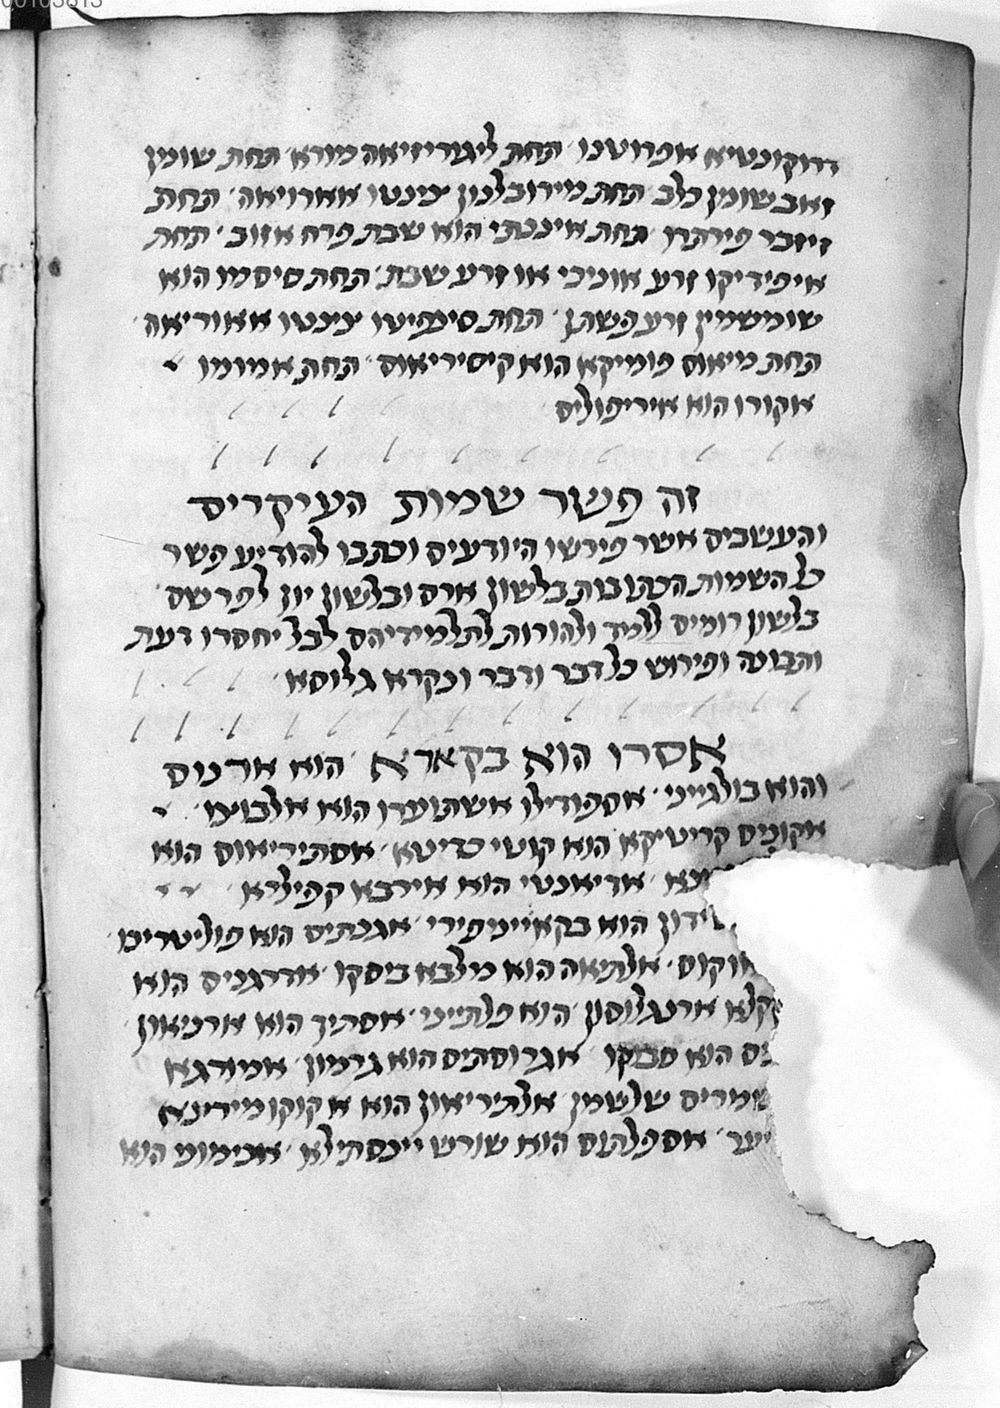 דרוקונטיא אפרוטנו תחת ליגוריזיאה מורא תחת שומן
זאב שומן כלב תחת מירובלנון יצינטו אארויאה תחת
זיזבר פירתרו תחת אינתי הוא שבת פרח אזוב תחת
איפידיקו זרע אוניכי או זרע שבת תחת סיסמו הוא
שומשמין זרע פשתן תחת סינפיטו יצינטו אאוריאה
תחת מיאוס פומיקא הוא קיסיריאוס תחת אמומו
אקורו הוא איריפוליס
זה פשר שמות העיקרים
והעשבים אשר פירשו היודעים וכתבו להודיע פשר
כל השמות הכתובות בלשון ארם ובלשון יון לפרשם
בלשון רומים ללמד ולהורות לתלמידיהם לבל יחסרו דעת
ותבונה ופירוש כל דבר ודבר ונקרא גלוסא
אסרו הוא בקארא הוא ארנוס
והוא בולגייני אספודילו אשתוערו הוא אלבוציו
אקונים קריטיקא הוא קוטי טריטא אסתיריאוס הוא
אדיאנטי הוא אירבא קפילרא
ידון הוא בקאיימפירי אגבתים הוא פוליטריכו
וקוס אלתיאה הוא מלבא ביסקו אדרגניס הוא
קלא ארנגלוסון הוא פלנתייני אסתיך הוא ארניאון
ים הוא סבוקו אגרוסתיס הוא גרמון אמורגא
שמרים שלשמן אלתיריאון הוא אקוקומירינא
יער אספלתוס הוא שורש יינסתילא אנימומי הוא